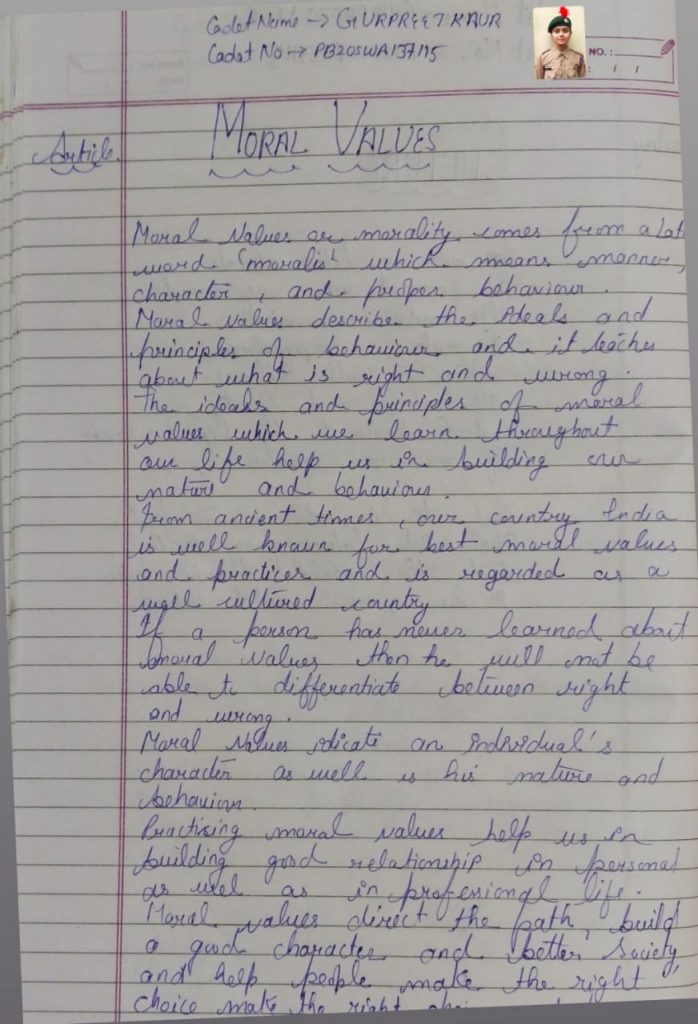 Cadet Name → GURPREET KAUR
Cadet No → PB20SWA137115
NO. :
: / /
Article.
MORAL VALUES
Moral Values or morality comes from a Lat
word 'moralis' which means manner,
character, and proper behaviour.
Moral values describe the Ideals and
principles of behaviour and it teaches
about what is right and wrong.
The ideals and principles of moral
values which we learn throughout
our life help us in building our
nature and behaviour.
From ancient times, our country India
is well known for best moral values
and practices and is regarded as a
well cultured country
If a person has never learned about
moral values then he will not be
able to differentiate between right
and wrong.
Moral Values idicate an individual's
character as well is his nature and
behaviour.
Practising moral values help us in
building good relationship in personal
as well as in professional life.
Moral values direct the path, build
a good character and better Society
and help people make the right
choice make the right